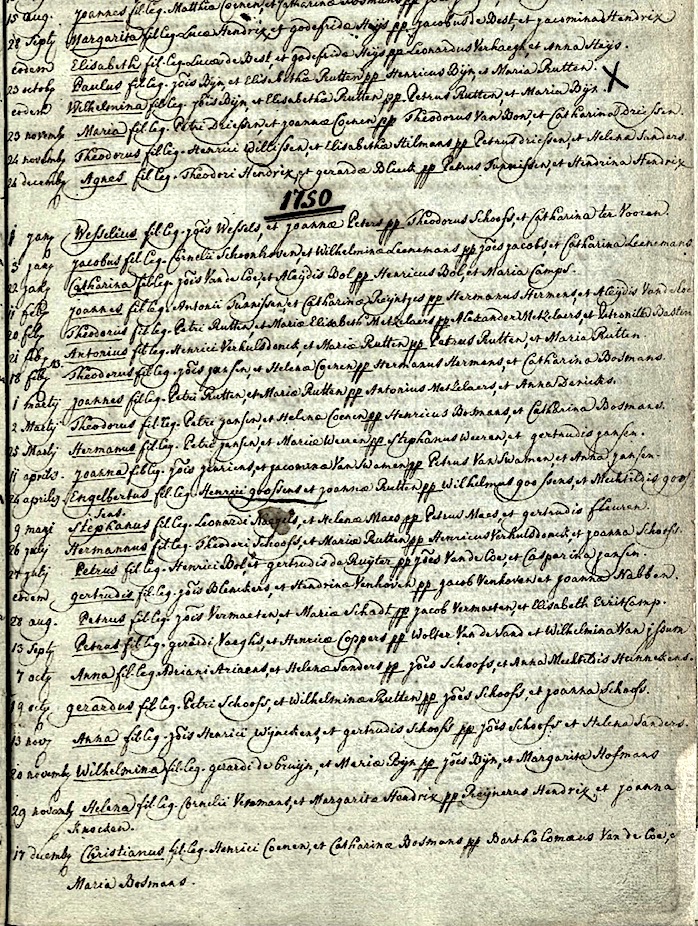 15 aug. Joannes fil. leg. Matthiæ Coenen, et
28 Septb Margarita fil. leg. Lucæ Hendrix et godefridæ Heijs pp Jacobus de Best, et jacomina Hendrix
eodem Elisabeth fil. leg. Lucas de Best, et godefridæ Heijs pp Leonardus Verhaegh, et Anna Heijs.
23 octob Paulus fil. leg. jois Bijn, et Elisabetha Rutten pp Henricus Bijn, et Maria Rutten. X
eodem Wilhelmina fil. leg. jois Bijn, et Elisabetha Rutten pp Petrus Rutten, et Maria Bijn.
23 novemb Maria fil. leg. Petri Driessen, et joannæ Coenen pp Theodorus Van Bon, et Catharina Driessen.
24 novemb Theodorus fil. leg. Henrici Willissen, et Elisabethæ Hilmans pp Petrus driessen, et Helena Sanders
26 decemb Agnes fil. leg. Theodori Hendrix, et gerardæ Bleeck pp Petrus Tunnissen, et Hendrina Hendrix
1750
1 jany Wesselius fil. leg. jois Wessels, et joannæ Peters pp Theodorus Schoofs, et Catharina ter Vooren.
3 jany jacobus fil. leg. Cornelii Schoonhoven et Wilhelmina Leenemans pp joes jacobs, et Catharina Leenemans
22 jany Catharina fil. leg. jois Van de Loe, et Aleydis Bol pp Henricus Bol, et Maria Camps.
11 feby joannes fil. leg. Antonii Tunnissen, et Catharinæ Reijntjes pp Hermanus Hermens, et Aleijdis Van de Loe
20 feby Theodorus fil. leg. Petri Rutten, et Mariæ Elisabeth Metzelaers pp Alexander Metzelaers, et Petronilla Basten
21 feby Antonius fil. leg. Henrici Verhulsdonck, et Mariæ Rutten pp Petrus Rutten, et Maria Rutten
18 feby Theodorus fil. leg. jois jansen, et Helena Coenen pp Hermanus Hermens, et Catharina Bosmans.
1 martij joannes fil. leg. Petri Rutten, et Mariæ Rutten pp Antonius Metzelaers, et Anna Dericks.
2 Martij Theodorus fil. leg. Petri jansen, et Helenæ Coenen pp Henricus Bosmans, et Catharina Bosmans.
25 Martij Hermanus fil. leg. Petri jansen, et Mariæ Weeren pp Stephanus Weeren, et gertrudis jansen.
11 aprilis. joanna fil. leg. jois jenniens, et jacomina Van Swamen pp Petrus Van Swamen et Anna jansen.
26 aprilis Engelbertus fil. leg. Henrici goossens et joannæ Rutten pp Wilhelmus goossens, et Mechtildis goos
sens.
9 maji Stephanus fil. leg. Leonardi Naegels, et Helenæ Maes pp Petrus Maes, et gertrudis fleuren.
26 julij Hermannus fil. leg. Theodori Schoofs, et Mariæ Rutten pp Henricus Verhulsdonck, et joanna Schoofs.
27 julij Petrus fil. leg. Henrici Bol et gertrudis de Ruijter pp joes Van de Loe, et Casparina jansen.
eodem gertrudis fil. leg. jois Blenckers, et Hendrina Venhoven pp jacob Venhoven et joanna Nabben.
28 aug. Petrus fil. leg. jois Vermaeten, et Mariæ Schadt pp jacob Vermaeten, et Elisabeth Erritcamp.
13 Septb Petrus fil. leg. gerardi Vaeghs, et Henricæ Coppers pp Wolter Van de Sand et Wilhelmina Van ijssum
7 octb Anna fil. leg. Adriani Ariaens, et Helenæ Sanders pp jois Schoofs, et Anna Mechtildis Heinnekens.
19 octb gerardus fil. leg. Petri Schoofs, et Wilhelminæ Rutten pp joes Schoofs, et joanna Schoofs.
13 novb Anna fil. leg. jois Henrici Wijnekens, et gertrudis Schoofs pp jois Schoofs et Helena Sanders
20 novemb Wilhelmina fil. leg. gerardi de bruijn, et Mariæ Bijn pp joes Bijn, et Margarita Hofmans
29 novemb Helena fil. leg. Cornelii Veramans, et Margarita Hendrix pp Reijnerus Hendrix et joanna
Knocken.
17 decemb Christianus fil. leg. Henrici Coenen, et Catharinæ Bosmans pp Bartholomæus Van de Loe, e
Maria Bosmans.